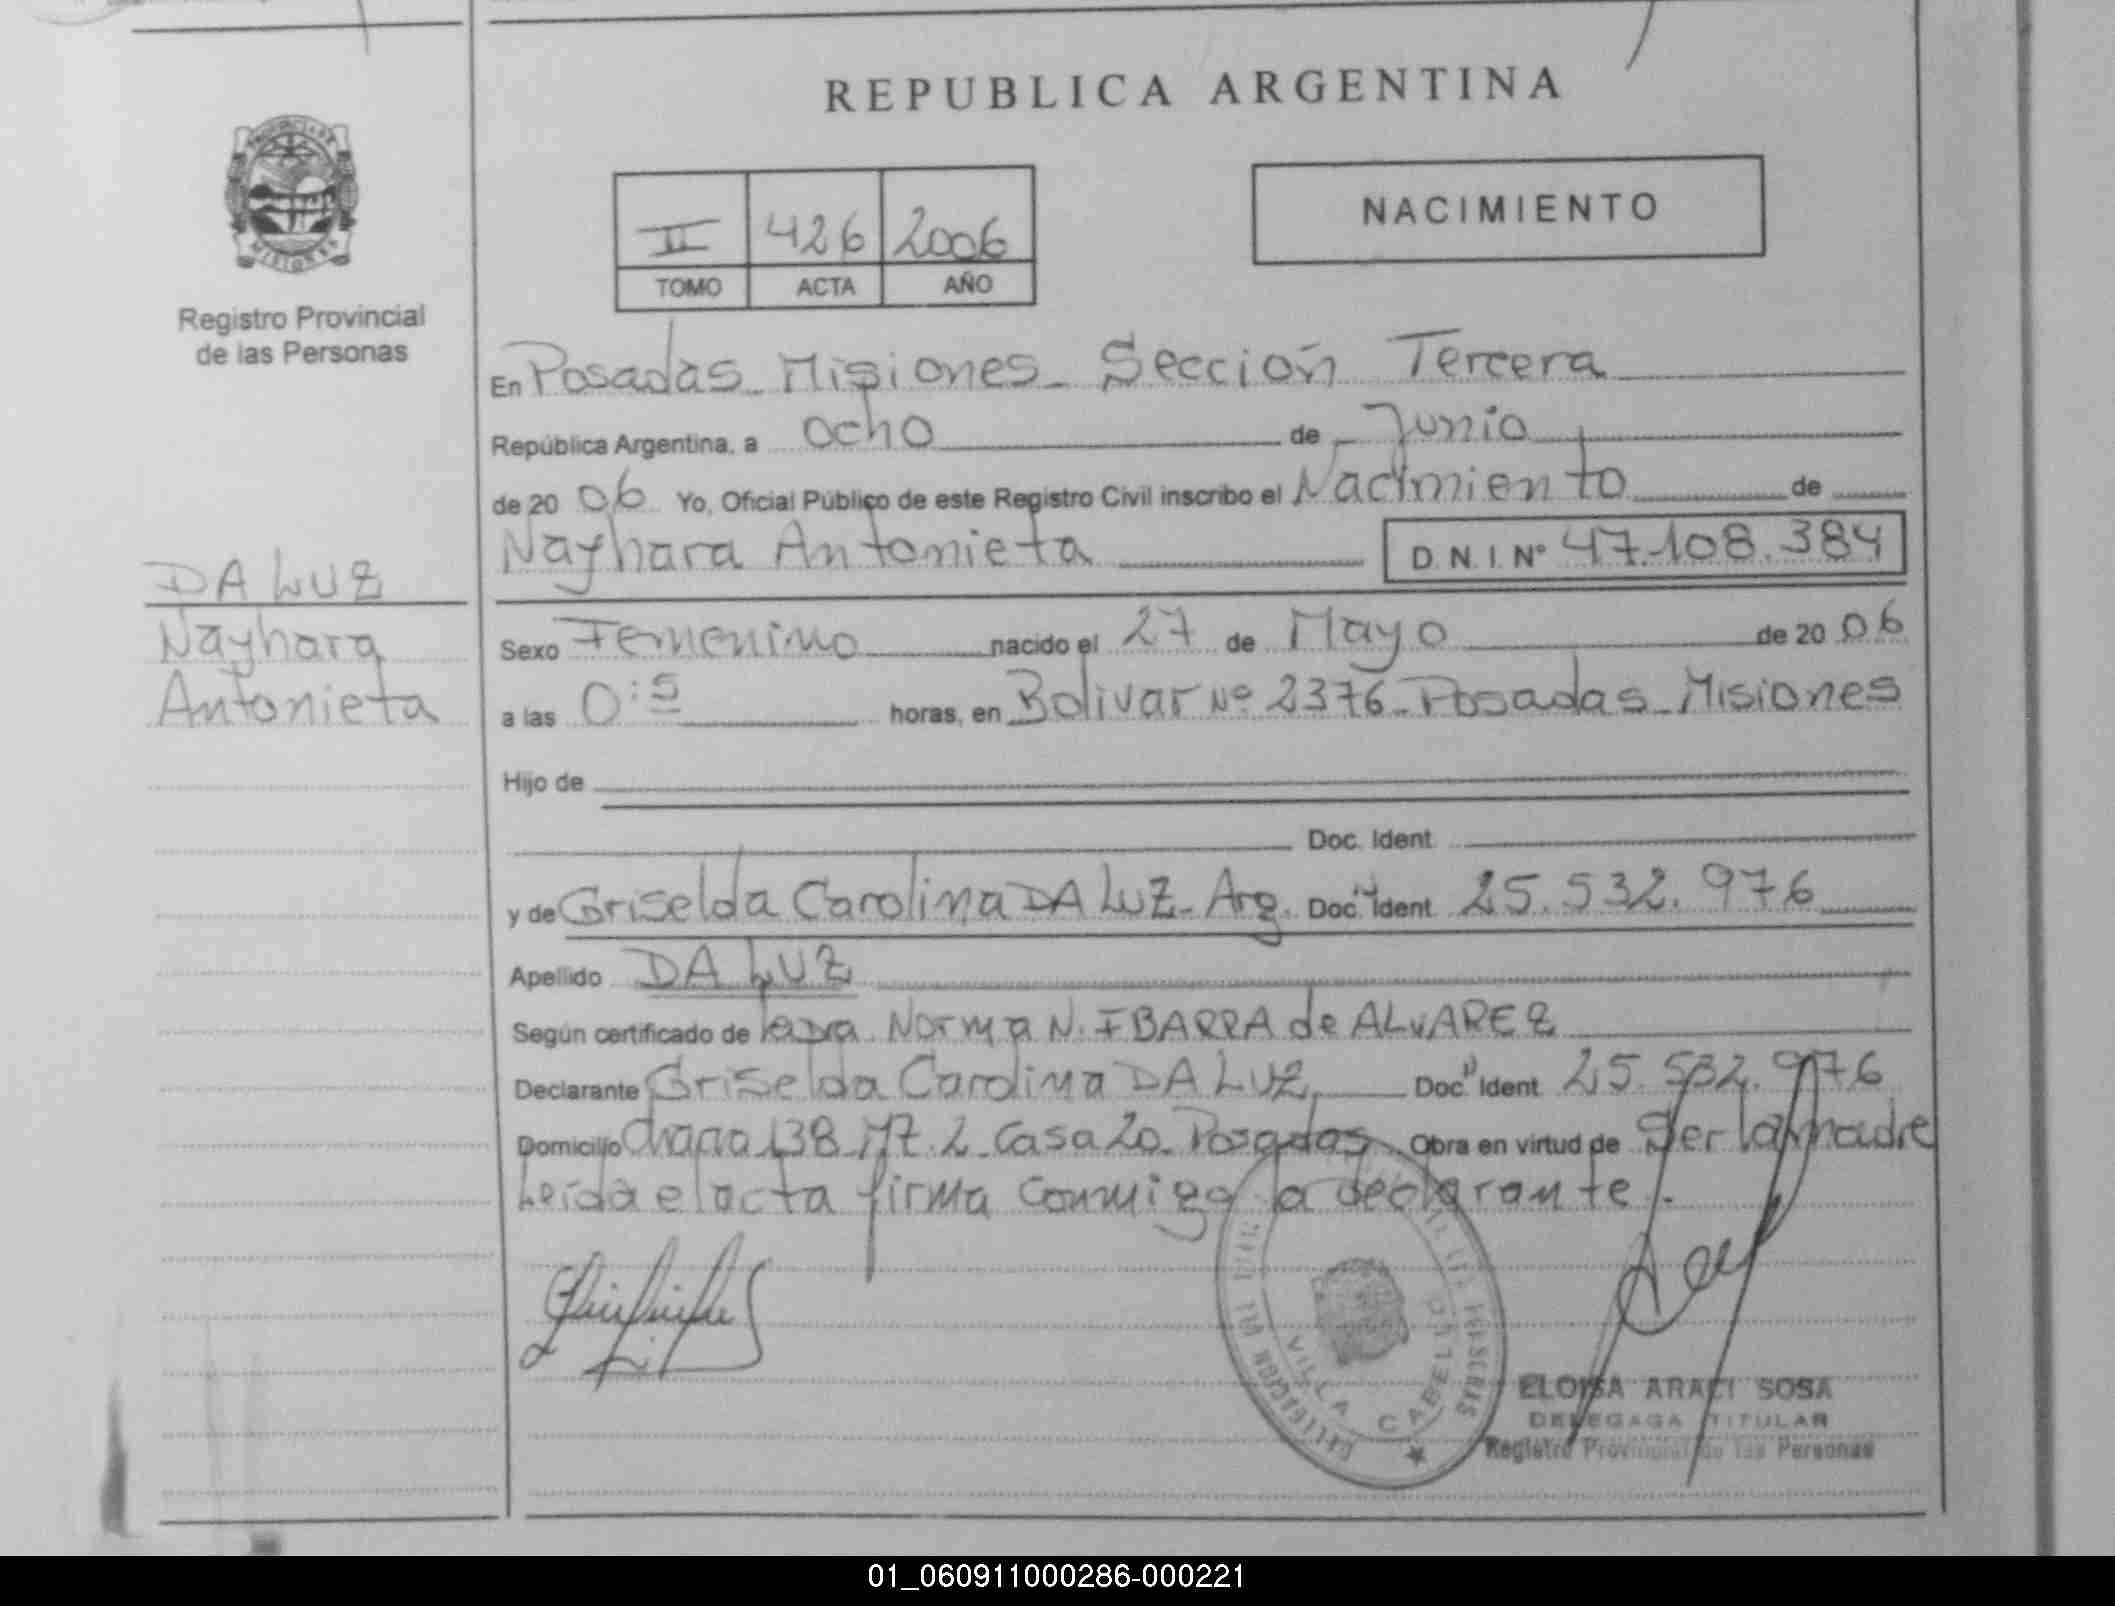 REPUBLICA ARGENTINA
PROVINCIA DE
MISIONES
Registro Provincial
de las Personas
II 426 2006
TOMO ACTA AÑO
NACIMIENTO
En Posadas Misiones Sección Tercera
República Argentina, a ocho de Junio
de 20 06 Yo, Oficial Público de este Registro Civil inscribo el Nacimiento de
Nayhara Antonieta D.N.I. Nº 47.108.384
DA LUZ
Nayhara
Antonieta
Sexo Femenino nacido el 27 de Mayo de 20 06
a las 0:5 horas, en Bolivar Nº 2376 - Posadas - Misiones
Hijo de
Doc. Ident
y de Griselda Carolina DA LUZ - Arg. Doc. Ident 25.532.976
Apellido DA LUZ
Según certificado de Norma N. IBARRA de ALVAREZ
Declarante Griselda Carolina DA LUZ Doc. Ident 25.532.976
Domicilio Chacra 138 - Mz. 2 - Casa 20 - Posadas Obra en virtud de Ser la madre
Leída el acta firma conmigo la declarante.
VILLA CABELLO
ELOISA ARACI SOSA
DELEGADA TITULAR
Registro Provincial de las Personas
01_060911000286-000221